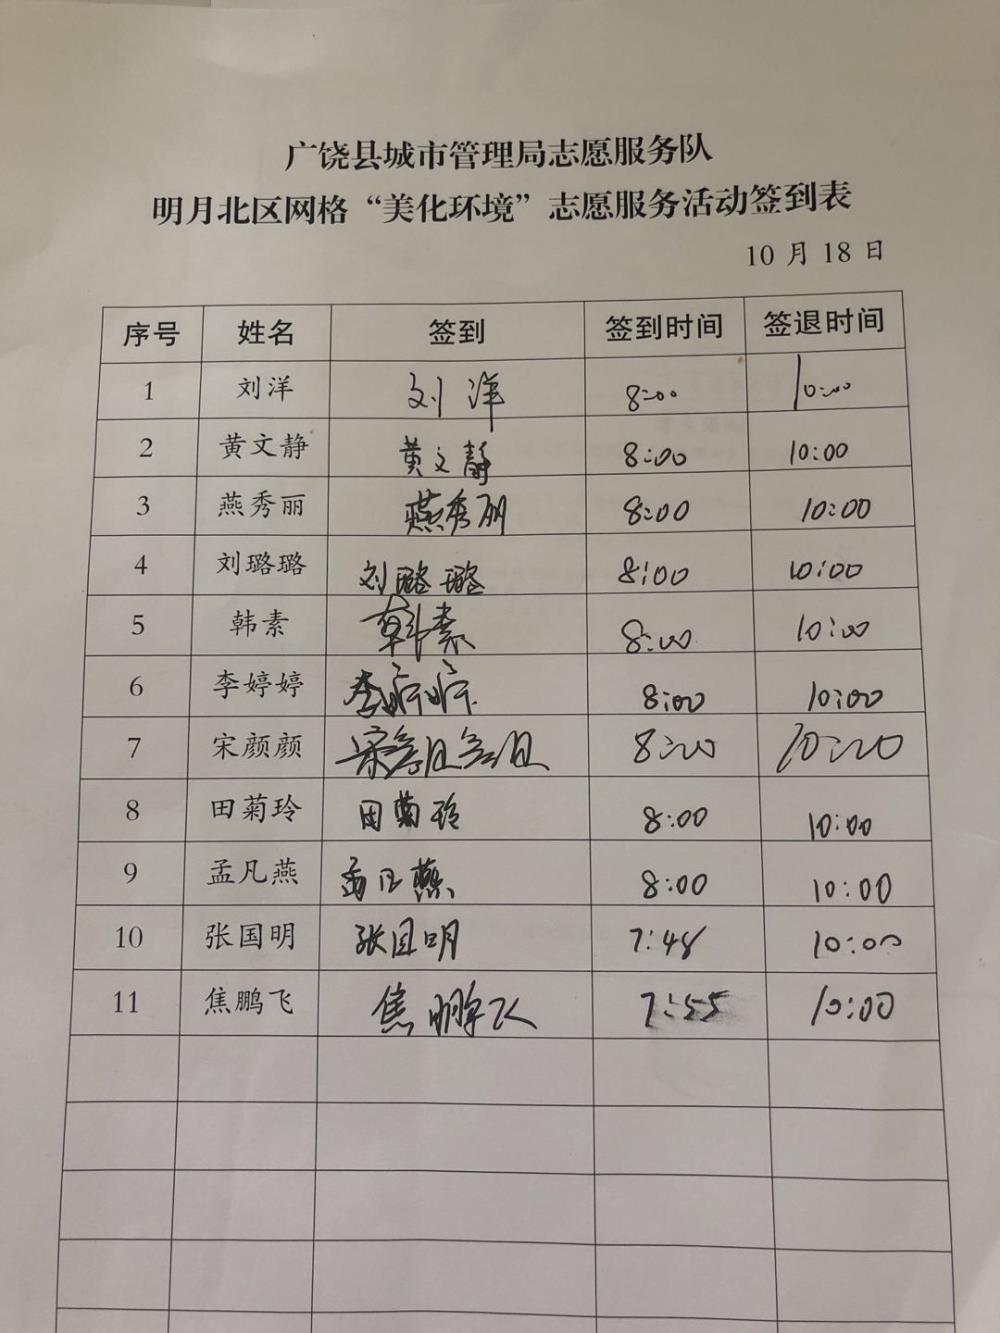 广饶县城市管理局志愿服务队
明月北区网格“美化环境”志愿服务活动签到表
10 月 18 日
序号 姓名 签到 签到时间 签退时间
1 刘洋 刘洋 8:00 10:00
2 黄文静 黄文静 8:00 10:00
3 燕秀丽 燕秀丽 8:00 10:00
4 刘璐璐 刘璐璐 8:00 10:00
5 韩素 韩素 8:00 10:00
6 李婷婷 李婷婷 8:00 10:00
7 宋颜颜 宋颜颜 8:00 10:00
8 田菊玲 田菊玲 8:00 10:00
9 孟凡燕 孟凡燕 8:00 10:00
10 张国明 张国明 7:48 10:00
11 焦鹏飞 焦鹏飞 7:55 10:00